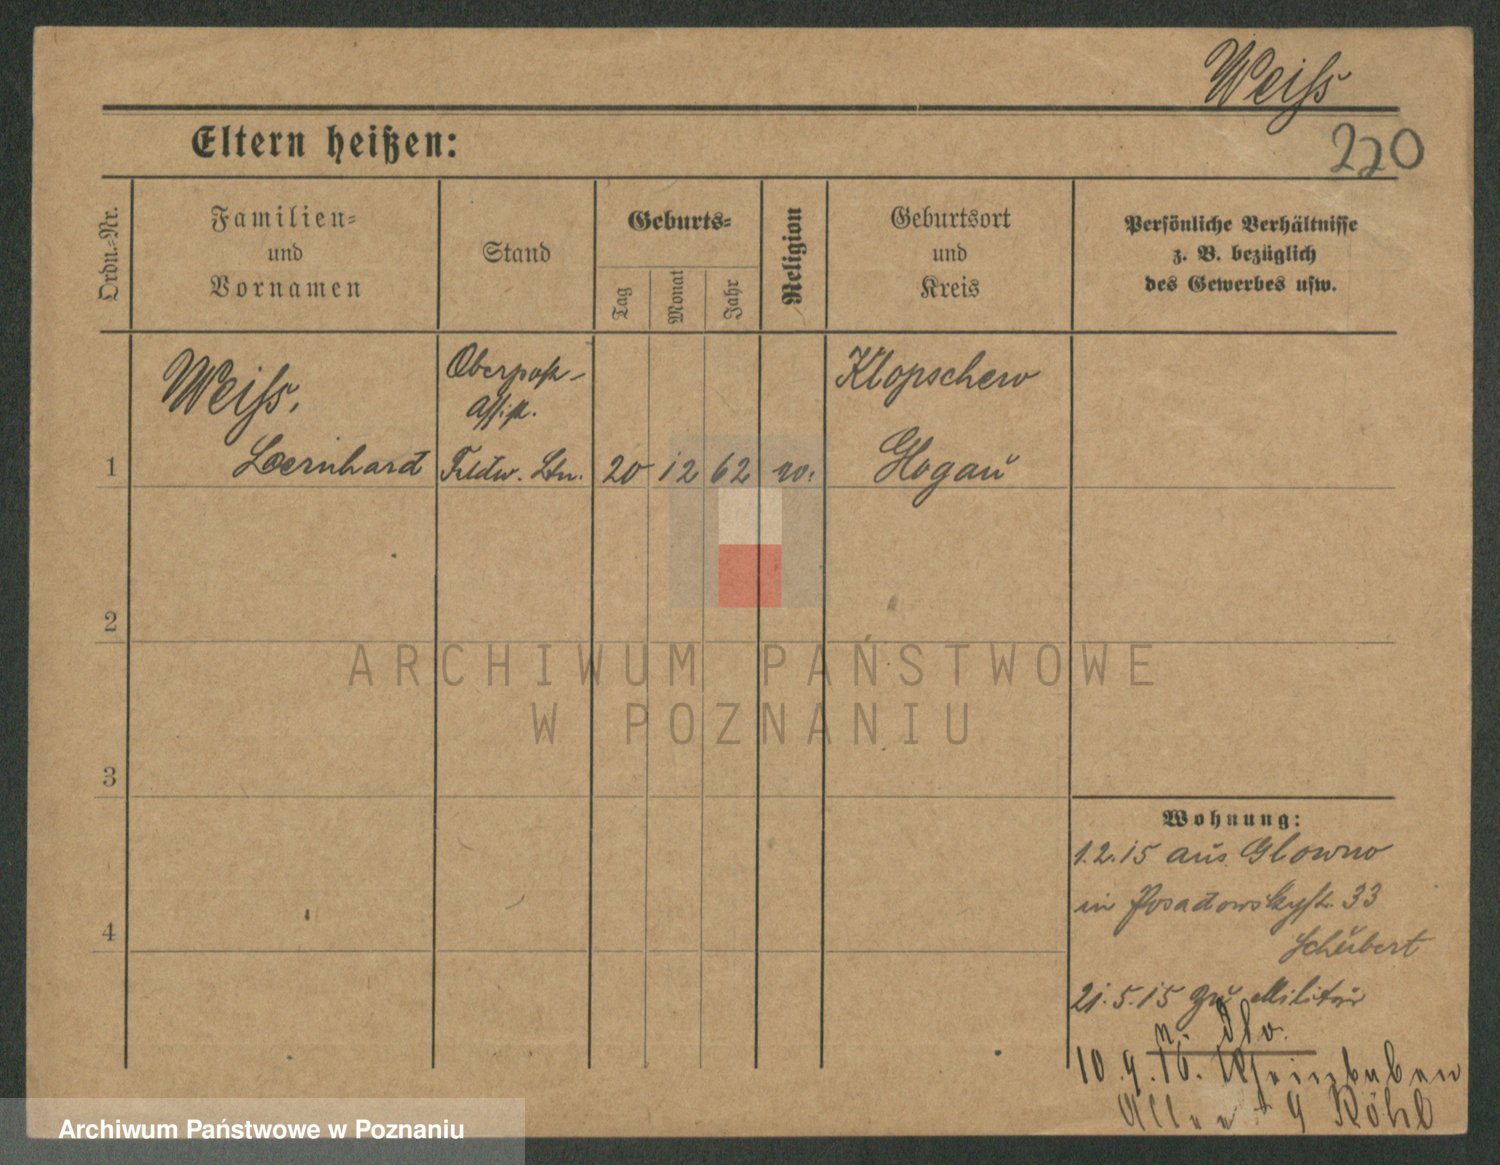 Weiß
220
Eltern heißen:
Ordn.-Nr.
Familien-
und
Vornamen
Stand
Geburts-
Tag
Monat
Jahr
Religion
Geburtsort
und
Kreis
Persönliche Verhältnisse
z. B. bezüglich
des Gewerbes usw.
Weiß,
Bernhard
Oberpost-
assist.
Feldw. Ltn.
1
20
12
62
Klopschew
Glogau
2
3
4
ARCHIWUM PAŃSTWOWE
W POZNANIU
Wohnung:
1.2.15 aus Glowno
in Posadowskystr. 33
Schubert
21.5.15 zu Militär
n.
10.9.16.
Allee 9 Röhl
Archiwum Państwowe w Poznaniu